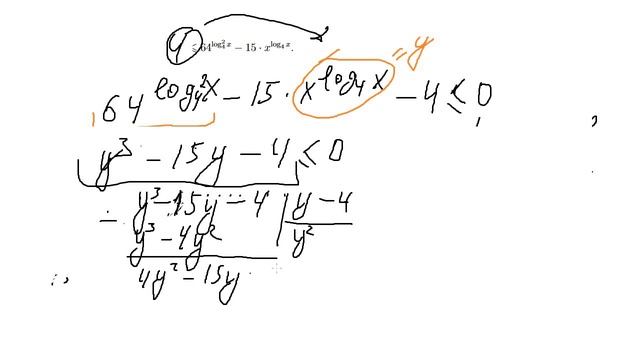 4 ≤ 64^{log_4^2 x} − 15 · x^{log_4 x}.
= y
64^{log_4^2 x} − 15 · x^{log_4 x} − 4 ≤ 0
y³ − 15y − 4 ≤ 0
y³ − 15y − 4 | y − 4
− y³ − 4y² | y²
4y² − 15y